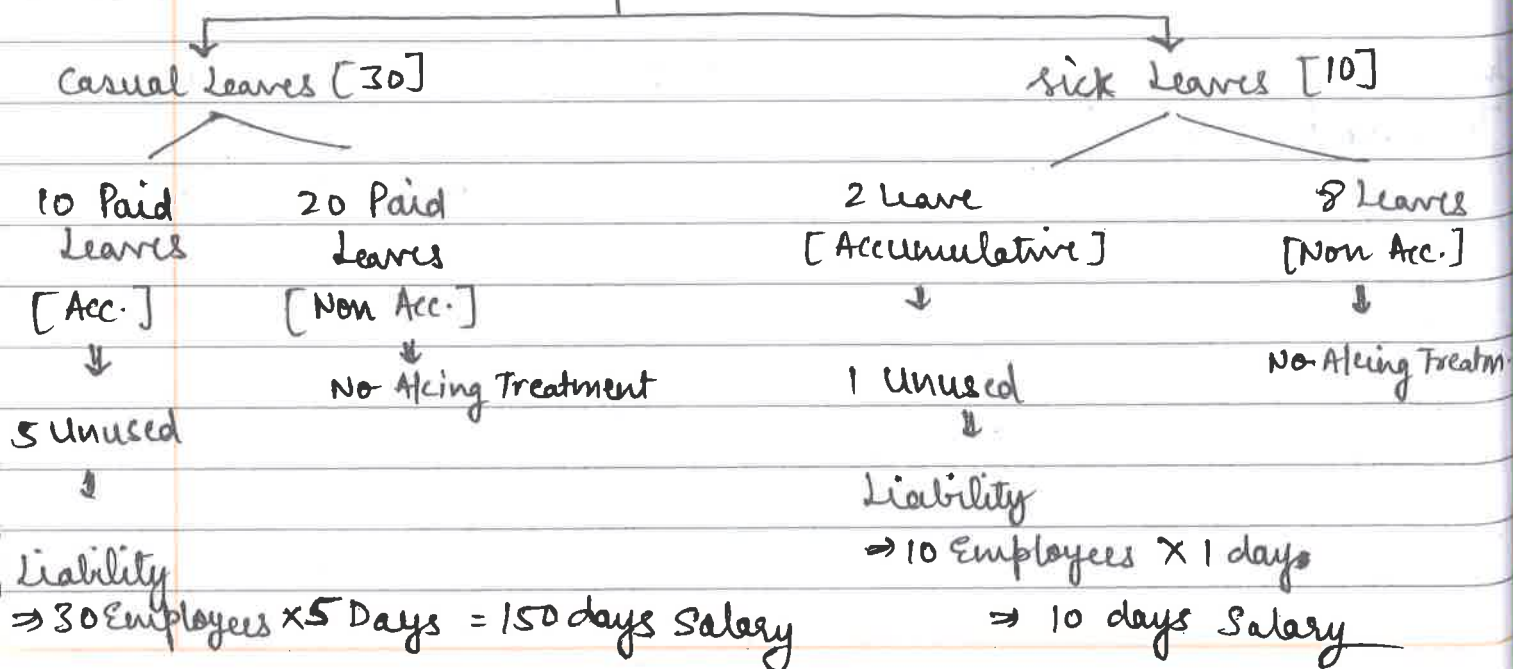 Casual Leaves [30]
sick Leaves [10]
10 Paid
Leaves
[Acc.]
5 Unused
Liability
⇒ 30 Employees × 5 Days = 150 days Salary
20 Paid
Leaves
[Non Acc.]
No A/cing Treatment
2 Leave
[Accumulative]
1 Unused
Liability
⇒ 10 Employees × 1 days
⇒ 10 days Salary
8 Leaves
[Non Acc.]
No A/cing Treatm.